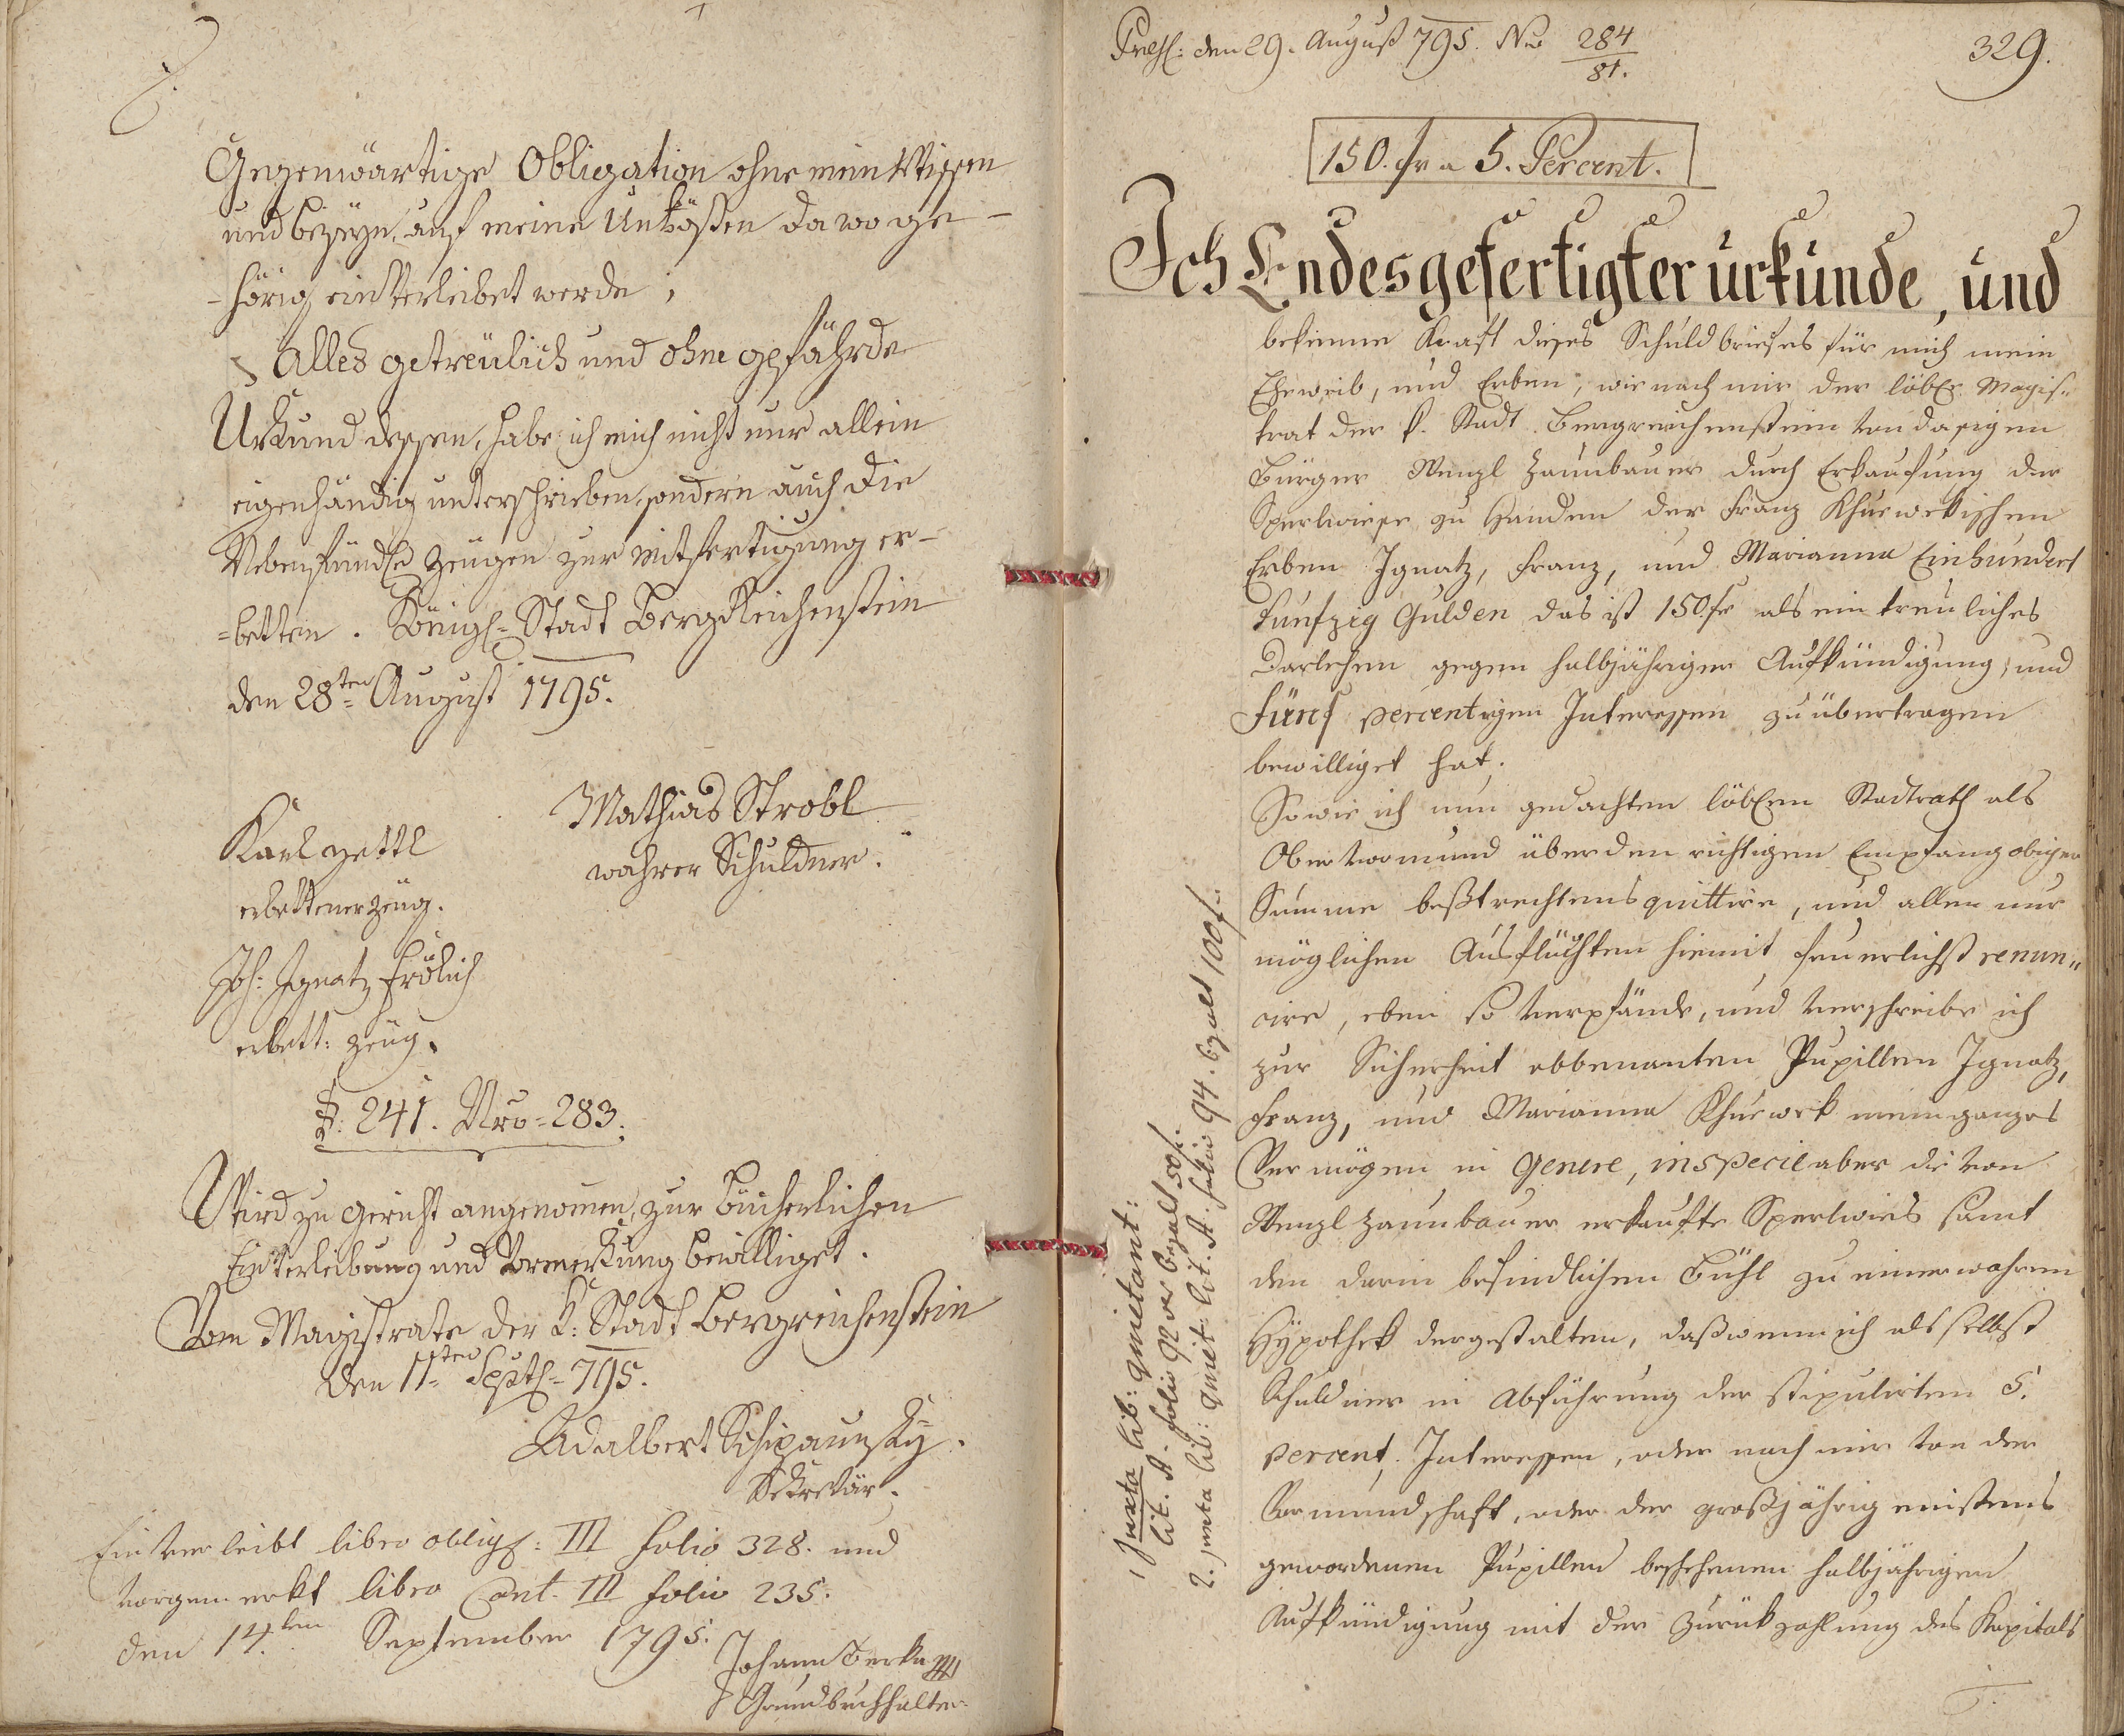 Gegenwärtige Obligation ohne mein Wissen
und beseyn, auf meine Unkösten da wo ge-
-hörig einverleibet werde;
Alles getreülich und ohne gefährde
Urkund dessen, habe ich mich nicht nur allein
eigenhändig unterschrieben, sondern auch die
Zeügen zur mitfertigung er-
-betten. Königl= Stadt BergReichenstein
den 28ten August 1795.
Mathias Strobl
wahrer Schuldner.
Karl Zettl
erbettener Zeüg.
Joh: Ignatz Frölich
erbett: Zeüg.
§. 241. Nro= 283.
Wird zu gericht angenomen, zur Bücherlichen
Einverleibung und Vormerkung bewilliget.
Vom Magistrate der K: Stadt Bergreichenstein
den 11ten Septb= 795.
Adalbert Schipaunsky.
Sekretär.
Einverleibt libro obligs: III folio 328. und
vorgemerkt libro Cont. III folio 235.
den 14ten September 1795.
Johann Berka
Grundbuchhalter
Press: den 29. August 795. Nro 284
81.
329.
150. fr a 5. Percent.
Ich Endesgefertigter urkunde, und
bekenne Kraft dieses Schuldbriefes für mich mein
Eheweib, und Erben, wie nach mir der löbl. Magis„
trat der k. Stadt Bergreichenstein von dasigen
Bürger Wenzl Zaunbauer durch Erkaufung der
Sperlwiese zu Handen der Franz Khuewekischen
Erben Ignatz, Franz, und Marianna Einhundert
funfzig Gulden das ist 150 fr als ein treuliches
Darlehen gegen halbjähriger Aufkündigung, und
fünf percentigen Interessen zu übertragen
bewilliget hat.
Sowie ich nun gedachten löblen Stadtrath als
Obervormund über den richtigen Empfang obiger
Summe beßtrechtens quittire, und allen nur
möglichen Ausflüchten hiemit feuerlichst renun„
cire, eben so verpfände, und verschreibe ich
zur Sicherheit obbenanten Pupillen Ignatz,
Franz, und Marianna Khuewek mein ganzes
Vermögen in Genere, in specie aber die von
Wenzl Zaunbauer erkaufte Sperlwies samt
den darin befindlichen Bühl zu einer wahren
Hypothek dergestalten, daß wenn ich als selbst
Schuldner in Abführung der stipulirten 5.
percent. Interessen, oder nach mir von der
Vormundschaft, oder der großjährig
gewordenen Pupillen beschehenen halbjährigen
Aufkündigung mit der Zurükzahlung des Kapitals
1 Juxta lib: quietant:
lit. A. folio 92 bezalt 50 f.
2. juxta lib: quiet: lit. A. folio 94. bezalt 100 f.